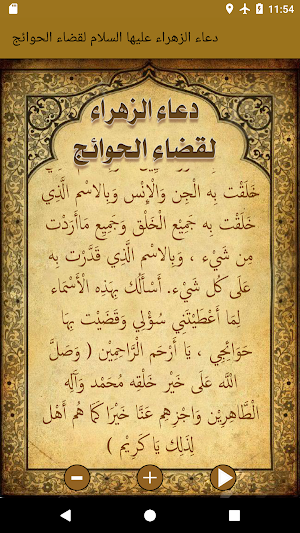 11:54
دعاء الزهراء عليها السلام لقضاء الحوائج
دعاء الزهراء
لقضاء الحوائج
خَلَقْتَ بِهِ الْجِنَ وَالْإِنْسَ وَبِالاسْمِ الَّذِي
خَلَقْتَ بِهِ جَمِيْعَ الْخَلْقِ وَجَمِيعَ مَاأَرَدْتَ
مِن شَيْءٍ ، وَبِالاسْمِ الَّذِي قَدَّرْتَ بِهِ
عَلَى كُلِّ شَيْءٍ. أَسْأَلُكَ بِهَذِهِ الْأَسْمَاءِ
لِمَا أَعْطَيْتَنِي سُؤْلِي وَقَضَيْتَ بِهَا
حَوَائِجِي ، يَا أَرْحَمَ الرَّاحِمِيْنَ ( وَصَلَّ
اللَّهُ عَلَى خَيْرِ خَلْقِهِ مُحَمَّد وَآلِهِ
الْطَّاهِرِيْنَ وَاجْزِهِم عَنَّا خَيْرًا كَمَا هُم أَهْل
لِذَلِكَ يَا كَرِيْم )